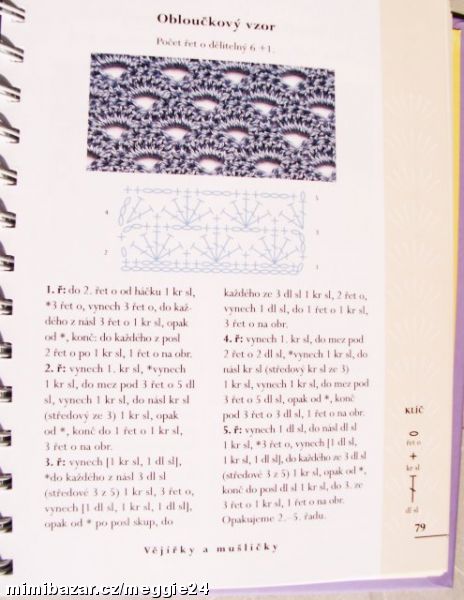 Obloučkový vzor
Počet řet o dělitelný 6 +1.
5
4
3
2
1
1. ř: do 2. řet o od háčku 1 kr sl,
*3 řet o, vynech 3 řet o, do kaž-
dého z násl 3 řet o 1 kr sl, opak
od *, konč: do každého z posl
2 řet o po 1 kr sl, 1 řet o na obr.
2. ř: vynech 1. kr sl, *vynech
1 kr sl, do mez pod 3 řet o 5 dl
sl, vynech 1 kr sl, do násl kr sl
(středový ze 3) 1 kr sl, opak
od *, konč do 1 řet o 1 kr sl,
3 řet o na obr.
3. ř: vynech [1 kr sl, 1 dl sl],
*do každého z násl 3 dl sl
(středové 3 z 5) 1 kr sl, 3 řet o,
vynech [1 dl sl, 1 kr sl, 1 dl sl],
opak od * po posl skup, do
každého ze 3 dl sl 1 kr sl, 2 řet o,
vynech 1 dl sl, do 1 řet o 1 kr sl,
3 řet o na obr.
4. ř: vynech 1. kr sl, do mez pod
2 řet o 2 dl sl, *vynech 1 kr sl, do
násl kr sl (středový kr sl ze 3)
1 kr sl, vynech 1 kr sl, do mez pod
3 řet o 5 dl sl, opak od *, konč
pod 3 řet o 3 dl sl, 1 řet o na obr.
5. ř: vynech 1 dl sl, do násl dl sl
1 kr sl, *3 řet o, vynech [1 dl sl,
1 kr sl, 1 dl sl], do každého ze 3 dl sl
(středové 3 z 5) 1 kr sl, opak od *,
konč do posl dl sl 1 kr sl, do 3. ze
3 řet o 1 kr sl, 1 řet o na obr.
Opakujeme 2.–5. řadu.
KLÍČ
řet o
kr sl
dl sl
79
Vějířky a mušličky
mimibazar.cz/meggie24